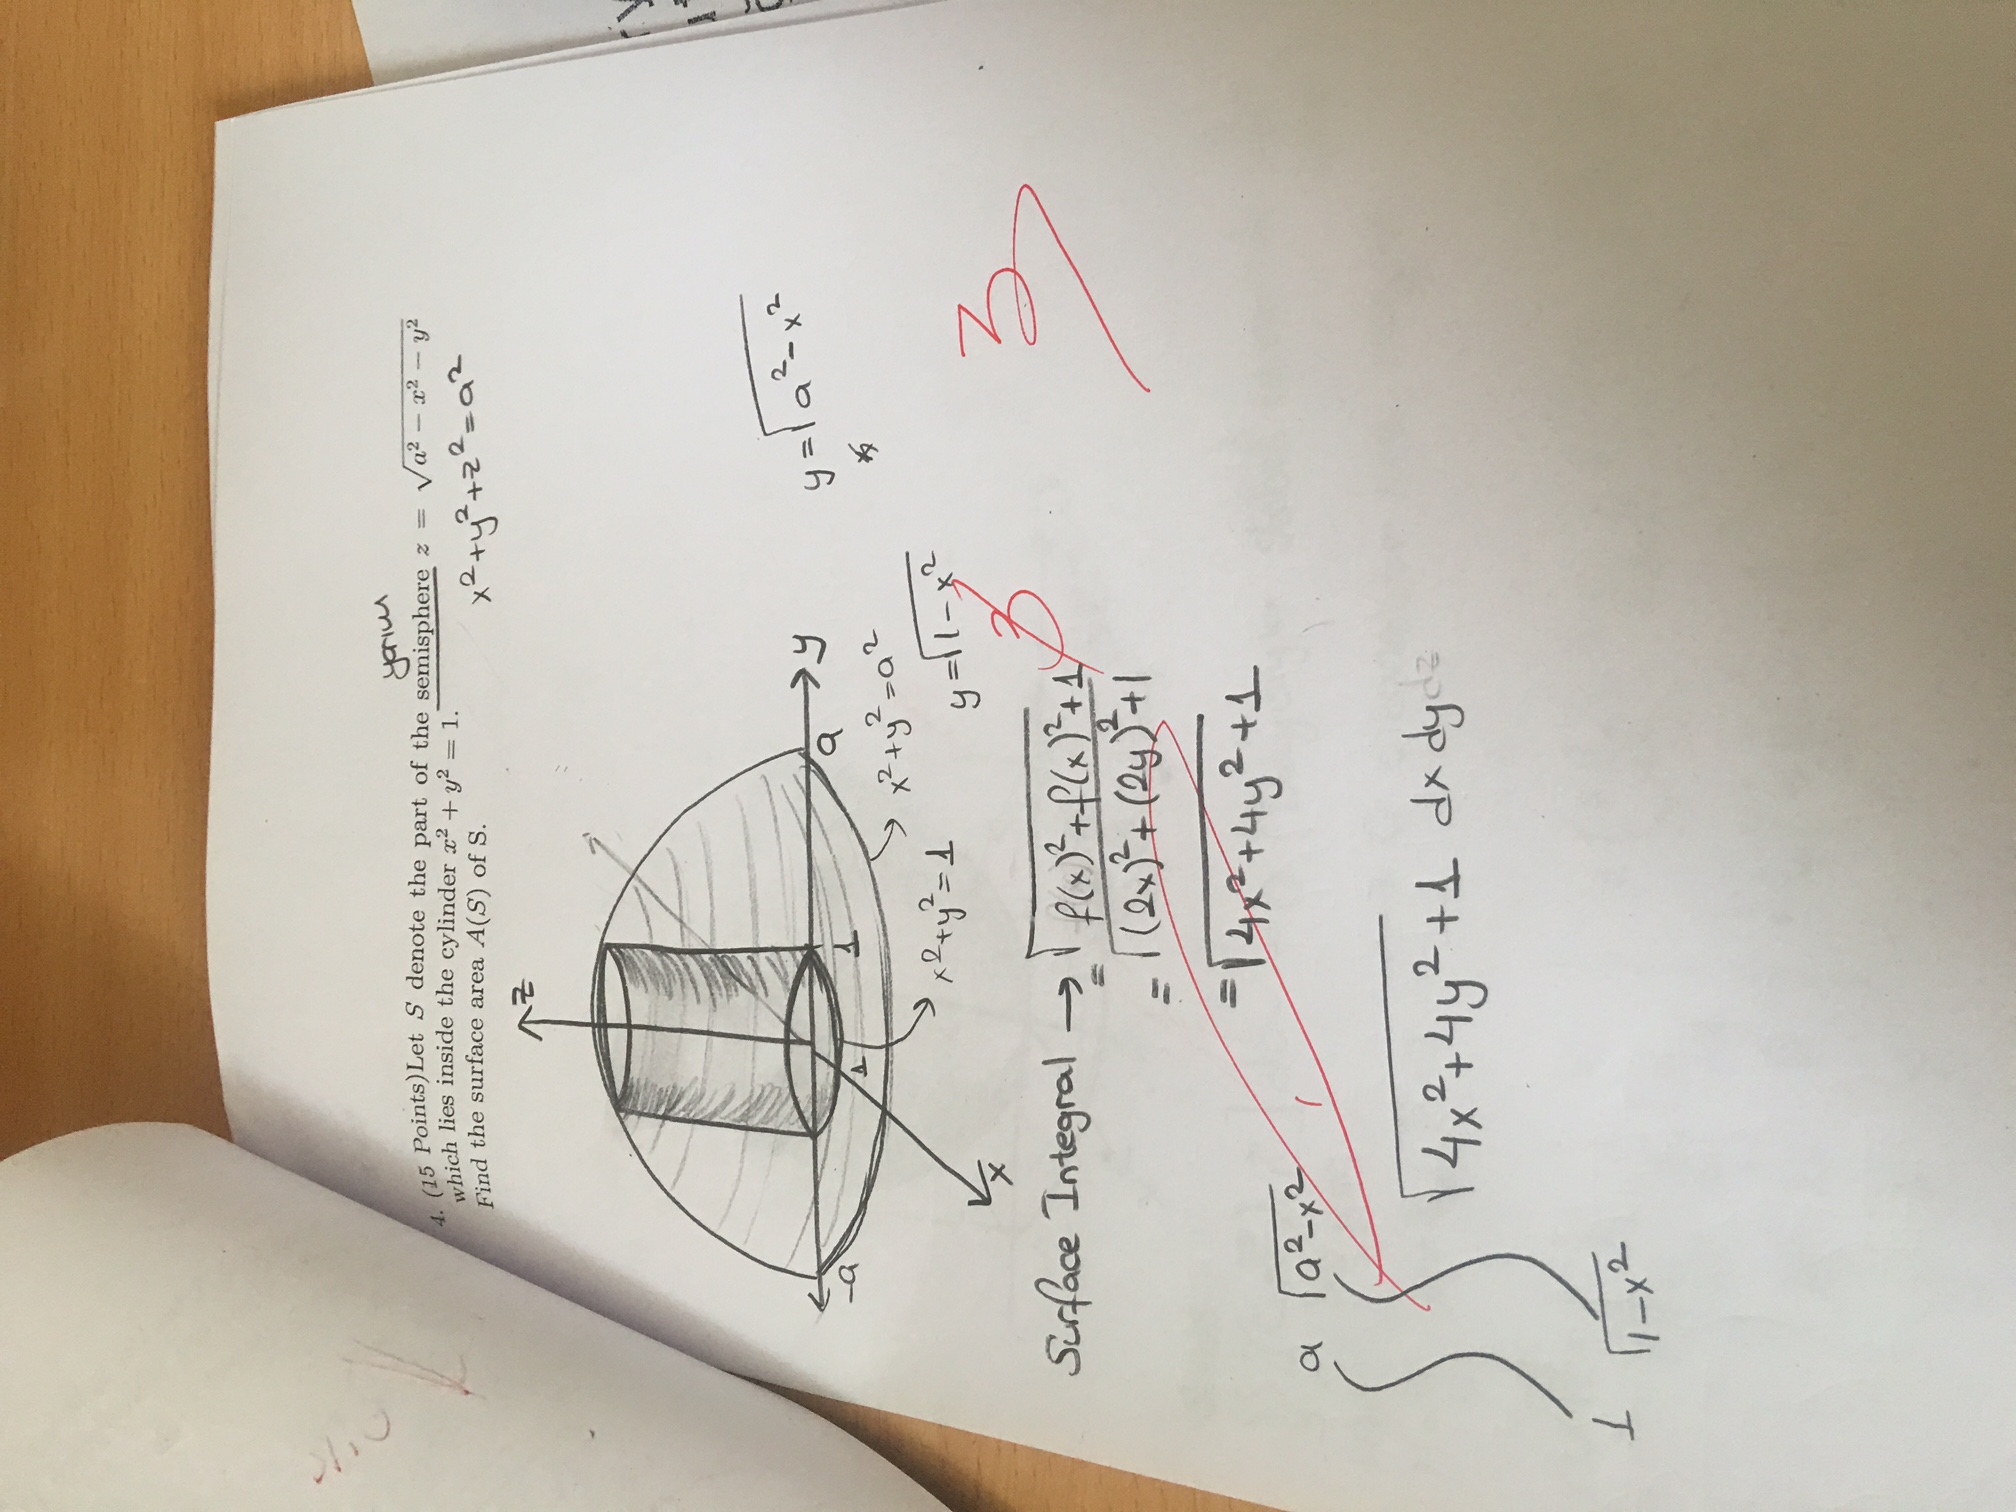 yarım
4. (15 Points)Let S denote the part of the semisphere z = √(a² − x² − y²)
which lies inside the cylinder x² + y² = 1.
Find the surface area A(S) of S.
x²+y²+z²=a²
z
y
-a
1
1
a
x
x²+y²=a²
x²+y²=1
y=√(a²-x²)
y=√(1-x²)
3
3
Surface Integral → = √(f(x)²+f(x)²+1)
= √((2x)²+(2y)²+1)
= √(4x²+4y²+1)
a √(a²-x²)
∫ ∫ √(4x²+4y²+1) dx dy dz
1 √(1-x²)